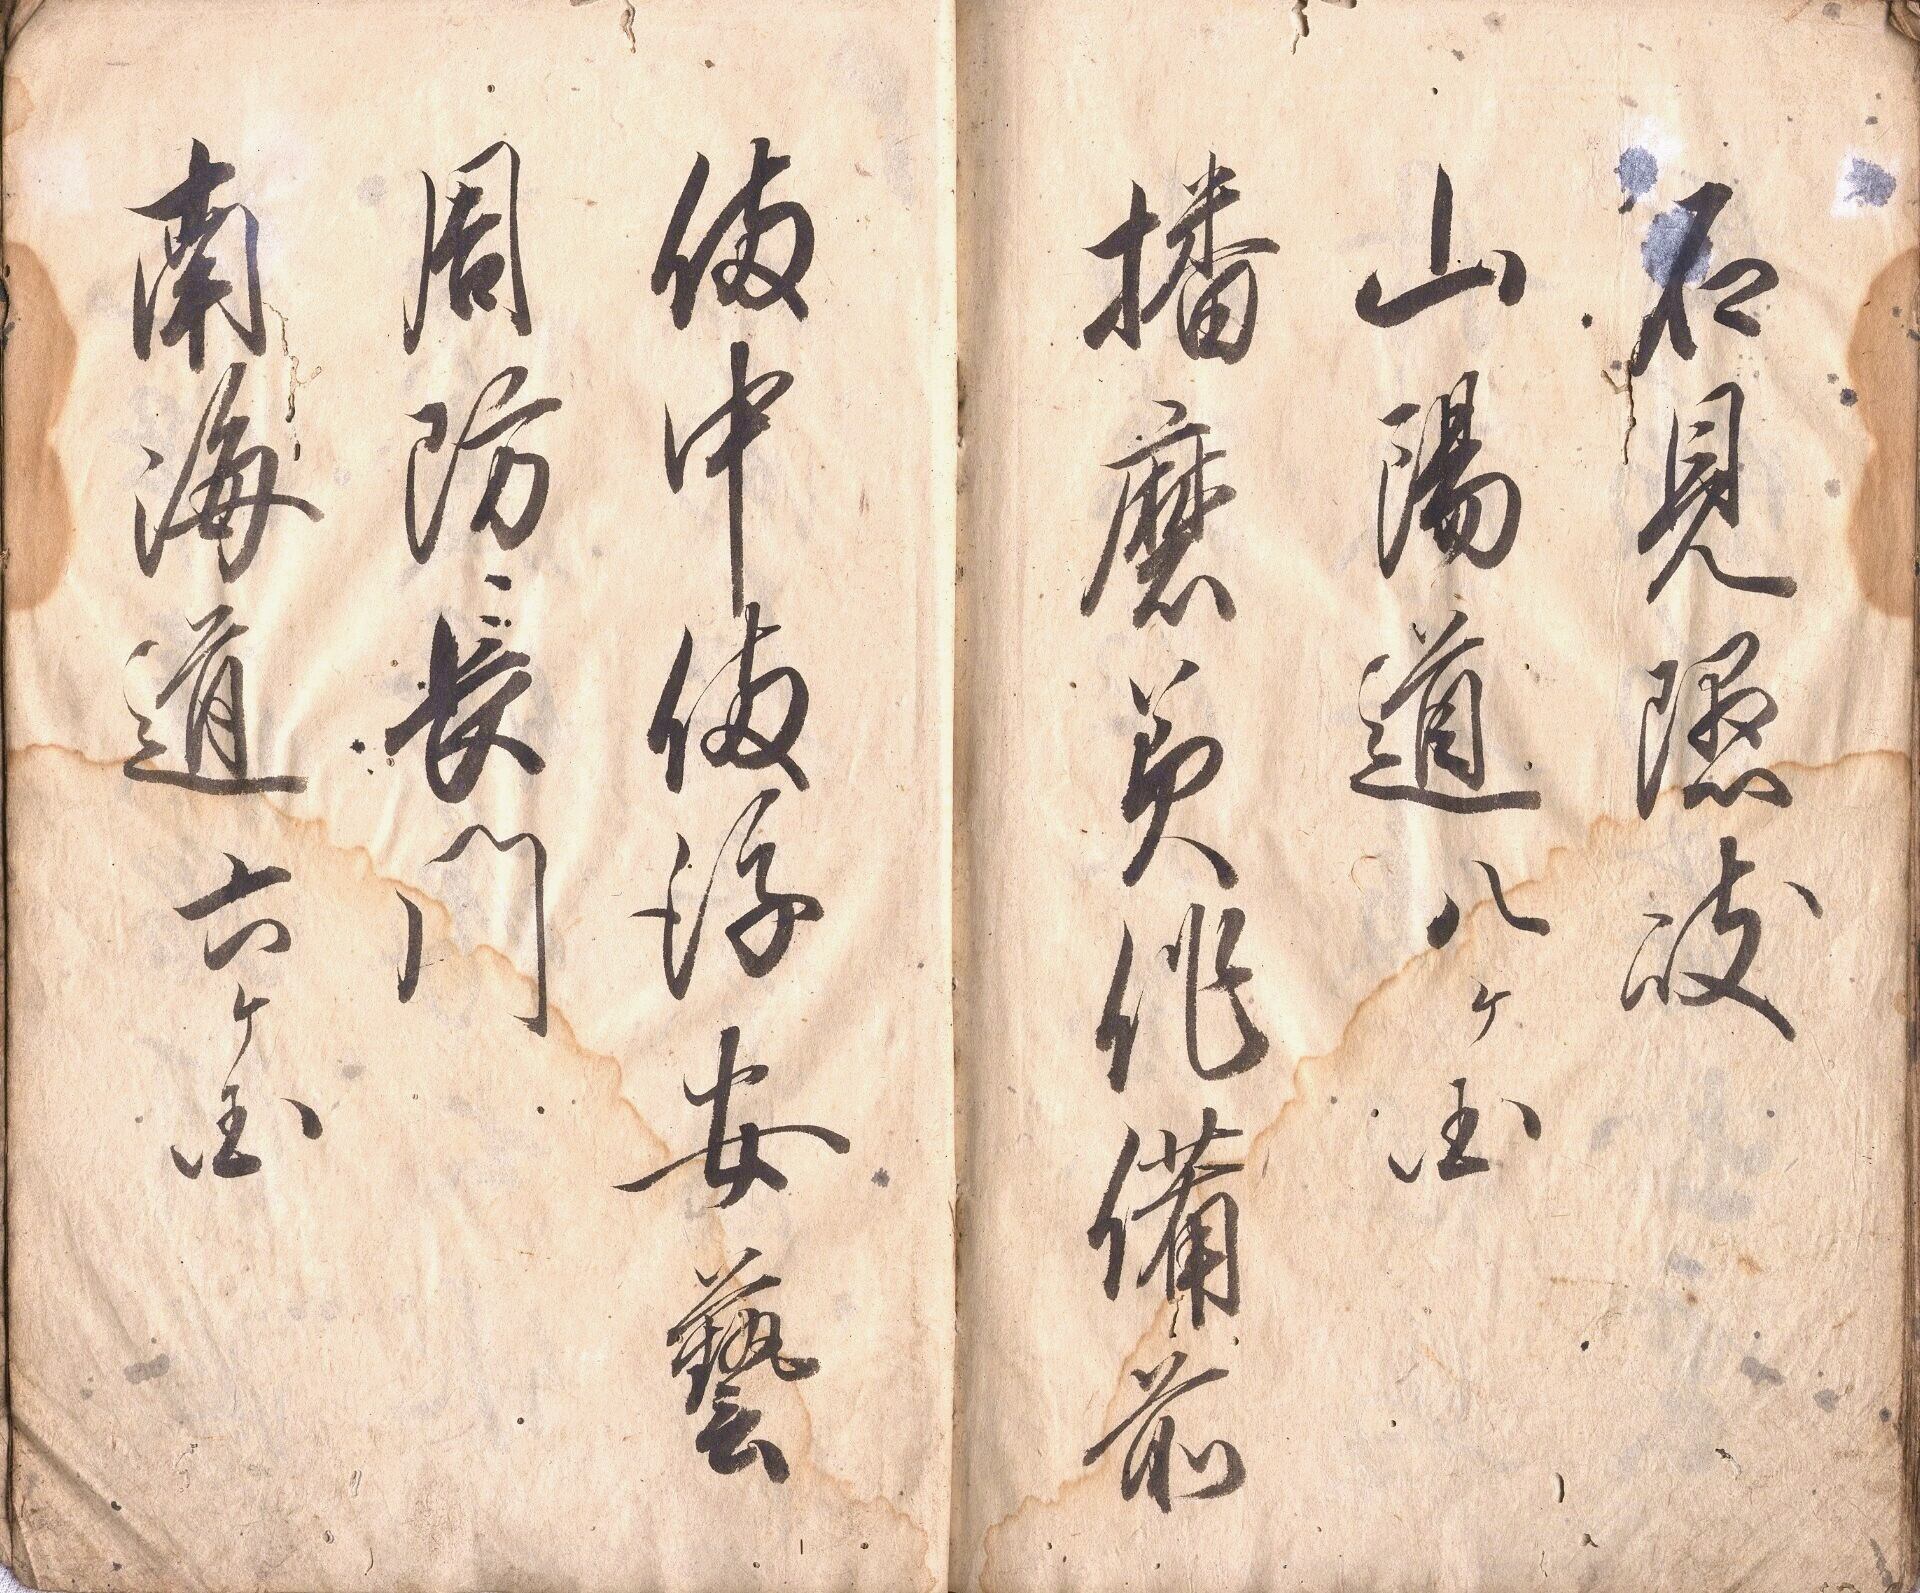 石見隠岐
山陽道八ケ国
播磨美作備前
備中備後安藝
周防長門
南海道六ケ国